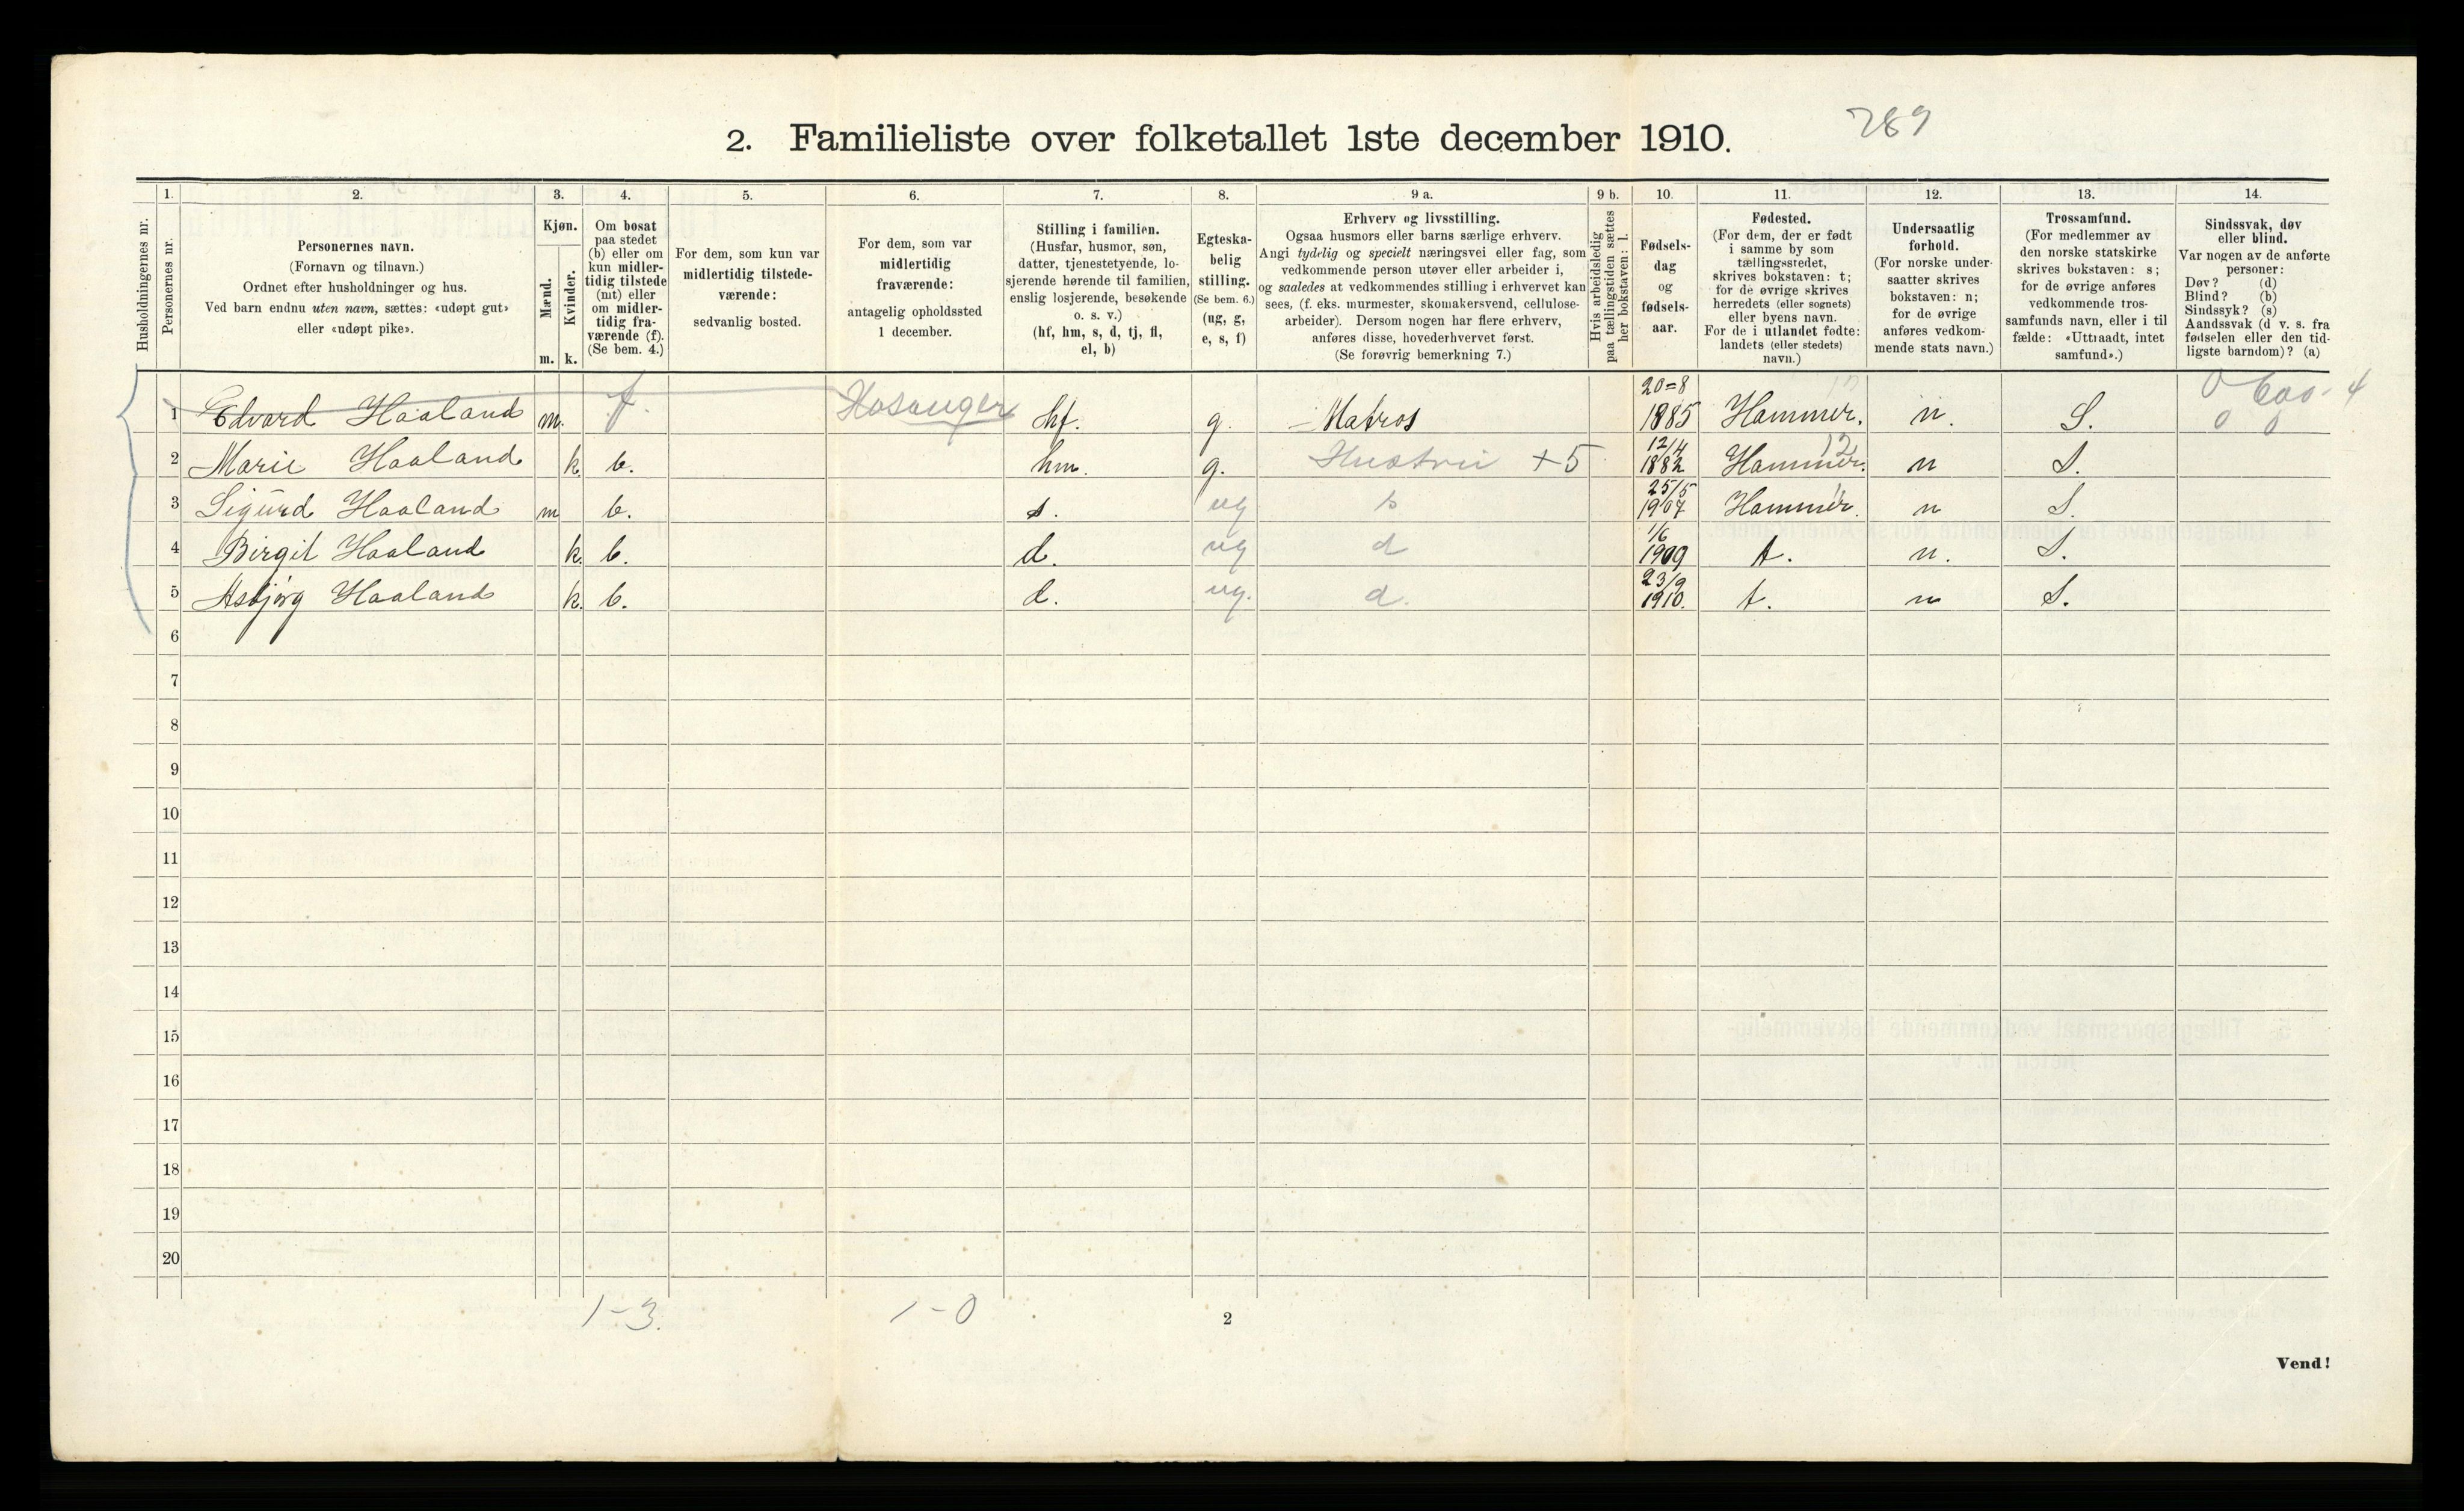 2. Familieliste over folketallet 1ste december 1910.
289
1. 2. 3. 4. 5. 6. 7. 8. 9 a. 9 b. 10. 11. 12. 13. 14.
Husholdningernes nr.
Personernes nr.
Personernes navn.
(Fornavn og tilnavn.)
Ordnet efter husholdninger og hus.
Ved barn endnu uten navn, sættes: «udøpt gut»
eller «udøpt pike».
Kjøn.
Mænd.
Kvinder.
m. k.
Om bosat
paa stedet
(b) eller om
kun midler-
tidig tilstede
(mt) eller
om midler-
tidig fra-
værende (f).
(Se bem. 4.)
For dem, som kun var
midlertidig tilstede-
værende:
sedvanlig bosted.
For dem, som var
midlertidig
fraværende:
antagelig opholdssted
1 december.
Stilling i familien.
(Husfar, husmor, søn,
datter, tjenestetyende, lo-
sjerende hørende til familien,
enslig losjerende, besøkende
o. s. v.)
(hf, hm, s, d, tj, fl,
el, b)
Egteska-
belig
stilling.
(Se bem. 6.)
(ug, g,
e, s, f)
Erhverv og livsstilling.
Ogsaa husmors eller barns særlige erhverv.
Angi tydelig og specielt næringsvei eller fag, som
vedkommende person utøver eller arbeider i,
og saaledes at vedkommendes stilling i erhvervet kan
sees, (f. eks. murmester, skomakersvend, cellulose-
arbeider). Dersom nogen har flere erhverv,
anføres disse, hovederhvervet først.
(Se forøvrig bemerkning 7.)
Hvis arbeidsledig
paa tællingstiden sættes
her bokstaven: l.
Fødsels-
dag
og
fødsels-
aar.
Fødested.
(For dem, der er født
i samme by som
tællingsstedet,
skrives bokstaven: t;
for de øvrige skrives
herredets (eller sognets)
eller byens navn.
For de i utlandet fødte:
landets (eller stedets)
navn.)
Undersaatlig
forhold.
(For norske under-
saatter skrives
bokstaven: n;
for de øvrige
anføres vedkom-
mende stats navn.)
Trossamfund.
(For medlemmer av
den norske statskirke
skrives bokstaven: s;
for de øvrige anføres
vedkommende tros-
samfunds navn, eller i til
fælde: «Uttraadt, intet
samfund».)
Sindssvak, døv
eller blind.
Var nogen av de anførte
personer:
Døv? (d)
Blind? (b)
Sindssyk? (s)
Aandssvak (d v. s. fra
fødselen eller den tid-
ligste barndom)? (a)
1 Edvard Haaland m. f. Hosanger hf. g. Matros 20=8 1885 Hammer. n. S.
2 Marie Haaland k b. hm. g. Hustru +5 12/4 1882 Hammer. 12 n S.
3 Sigurd Haaland m b. s. ug s 25/5 1907 Hammer. n S.
4 Birgit Haaland k. b. d. ug d 1/6 1909 t. n. S.
5 Asbjørg Haaland k. b. d. ug. d. 23/9 1910. t. n S.
6
7
8
9
10
11
12
13
14
15
16
17
18
19
20
1-3. 1-0
2
Vend!